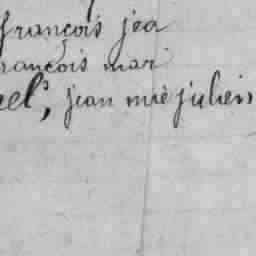 françois jea
rançois mari
el, jean mrie julien